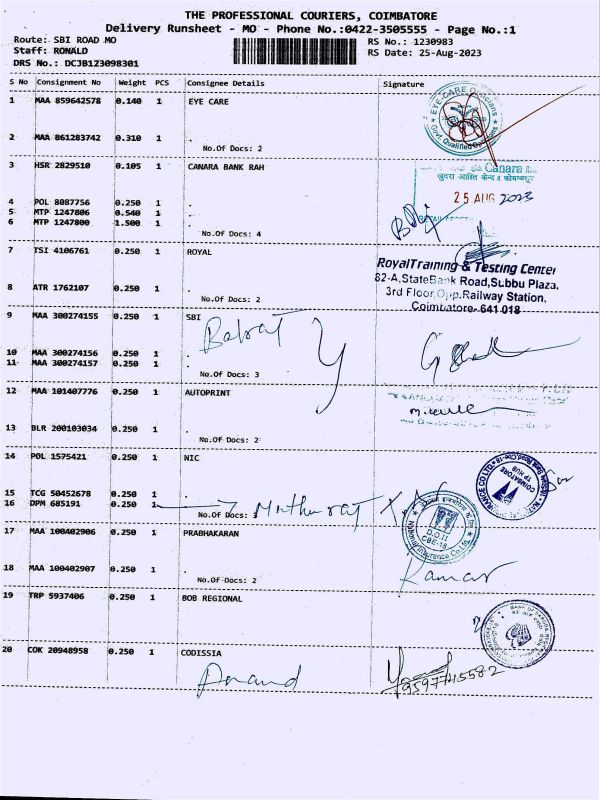 THE PROFESSIONAL COURIERS, COIMBATORE
Delivery Runsheet - MO - Phone No.:0422-3505555 - Page No.:1
Route: SBI ROAD MO
RS No.: 1230983
Staff: RONALD
RS Date: 25-Aug-2023
DRS No.: DCJB1Z3098301
S No Consignment No Weight PCS Consignee Details Signature
1 MAA 859642578 0.140 1 EYE CARE
EYE-CARE Opticians
Govt. Qualified Opticians
2 MAA 861283742 0.310 1 .
No.Of Docs: 2
3 HSR 2829510 0.105 1 CANARA BANK RAH
Canara
25 AUG 2023
4 POL 8087756 0.250 1 .
5 MTP 1247806 0.540 1 .
6 MTP 1247800 1.500 1 .
No.Of Docs: 4
7 TSI 4106761 0.250 1 ROYAL
Royal Training & Testing Center
82-A, State Bank Road, Subbu Plaza,
3rd Floor, Opp. Railway Station,
Coimbatore - 641 018
8 ATR 1762107 0.250 1 .
No.Of Docs: 2
9 MAA 300274155 0.250 1 SBI
10 MAA 300274156 0.250 1 .
11 MAA 300274157 0.250 1 .
No.Of Docs: 3
12 MAA 101407776 0.250 1 AUTOPRINT
13 BLR 200103034 0.250 1 .
No.Of Docs: 2
14 POL 1575421 0.250 1 NIC
COIMBATORE
TP HUB
15 TCG 50452678 0.250 1 .
16 DPM 685191 0.250 1 .
No.Of Docs: 3
National Insurance Co. Ltd.
D.O.II
CBE-18
17 MAA 100402906 0.250 1 PRABHAKARAN
18 MAA 100402907 0.250 1 .
No.Of Docs: 2
Kumar
19 TRP 5937406 0.250 1 BOB REGIONAL
20 COK 20948958 0.250 1 CODISSIA
Anand